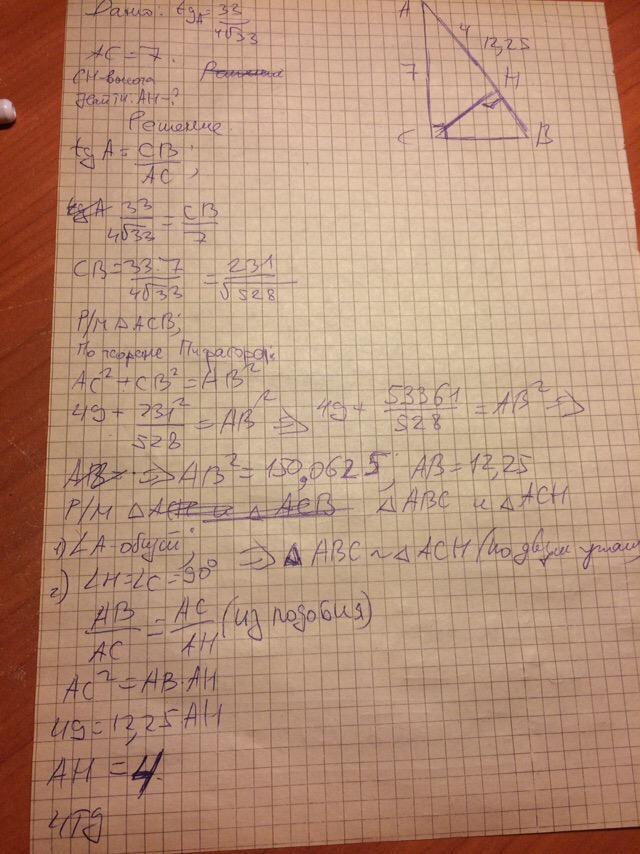 Дано: tg A = 33/4√33
AC = 7.
CH-высота
Найти: AH-?
Решение.
tg A = CB/AC;
33/4√33 = CB/7
CB = 33·7/4√33 = 231/√528
Р/м △ACB;
По теореме Пифагора:
AC² + CB² = AB²
49 + 231²/528 = AB² ⇒ 49 + 53361/528 = AB² ⇒
⇒ AB² = 150,0625; AB = 12,25
Р/м △ABC и △ACH
1) ∠A-общий;
2) ∠H=∠C=90° ⇒ △ABC ~ △ACH (по двум углам)
AB/AC = AC/AH (из подобия)
AC² = AB·AH
49 = 12,25 AH
AH = 4
ЧТД
A
4
12,25
7
H
C
B